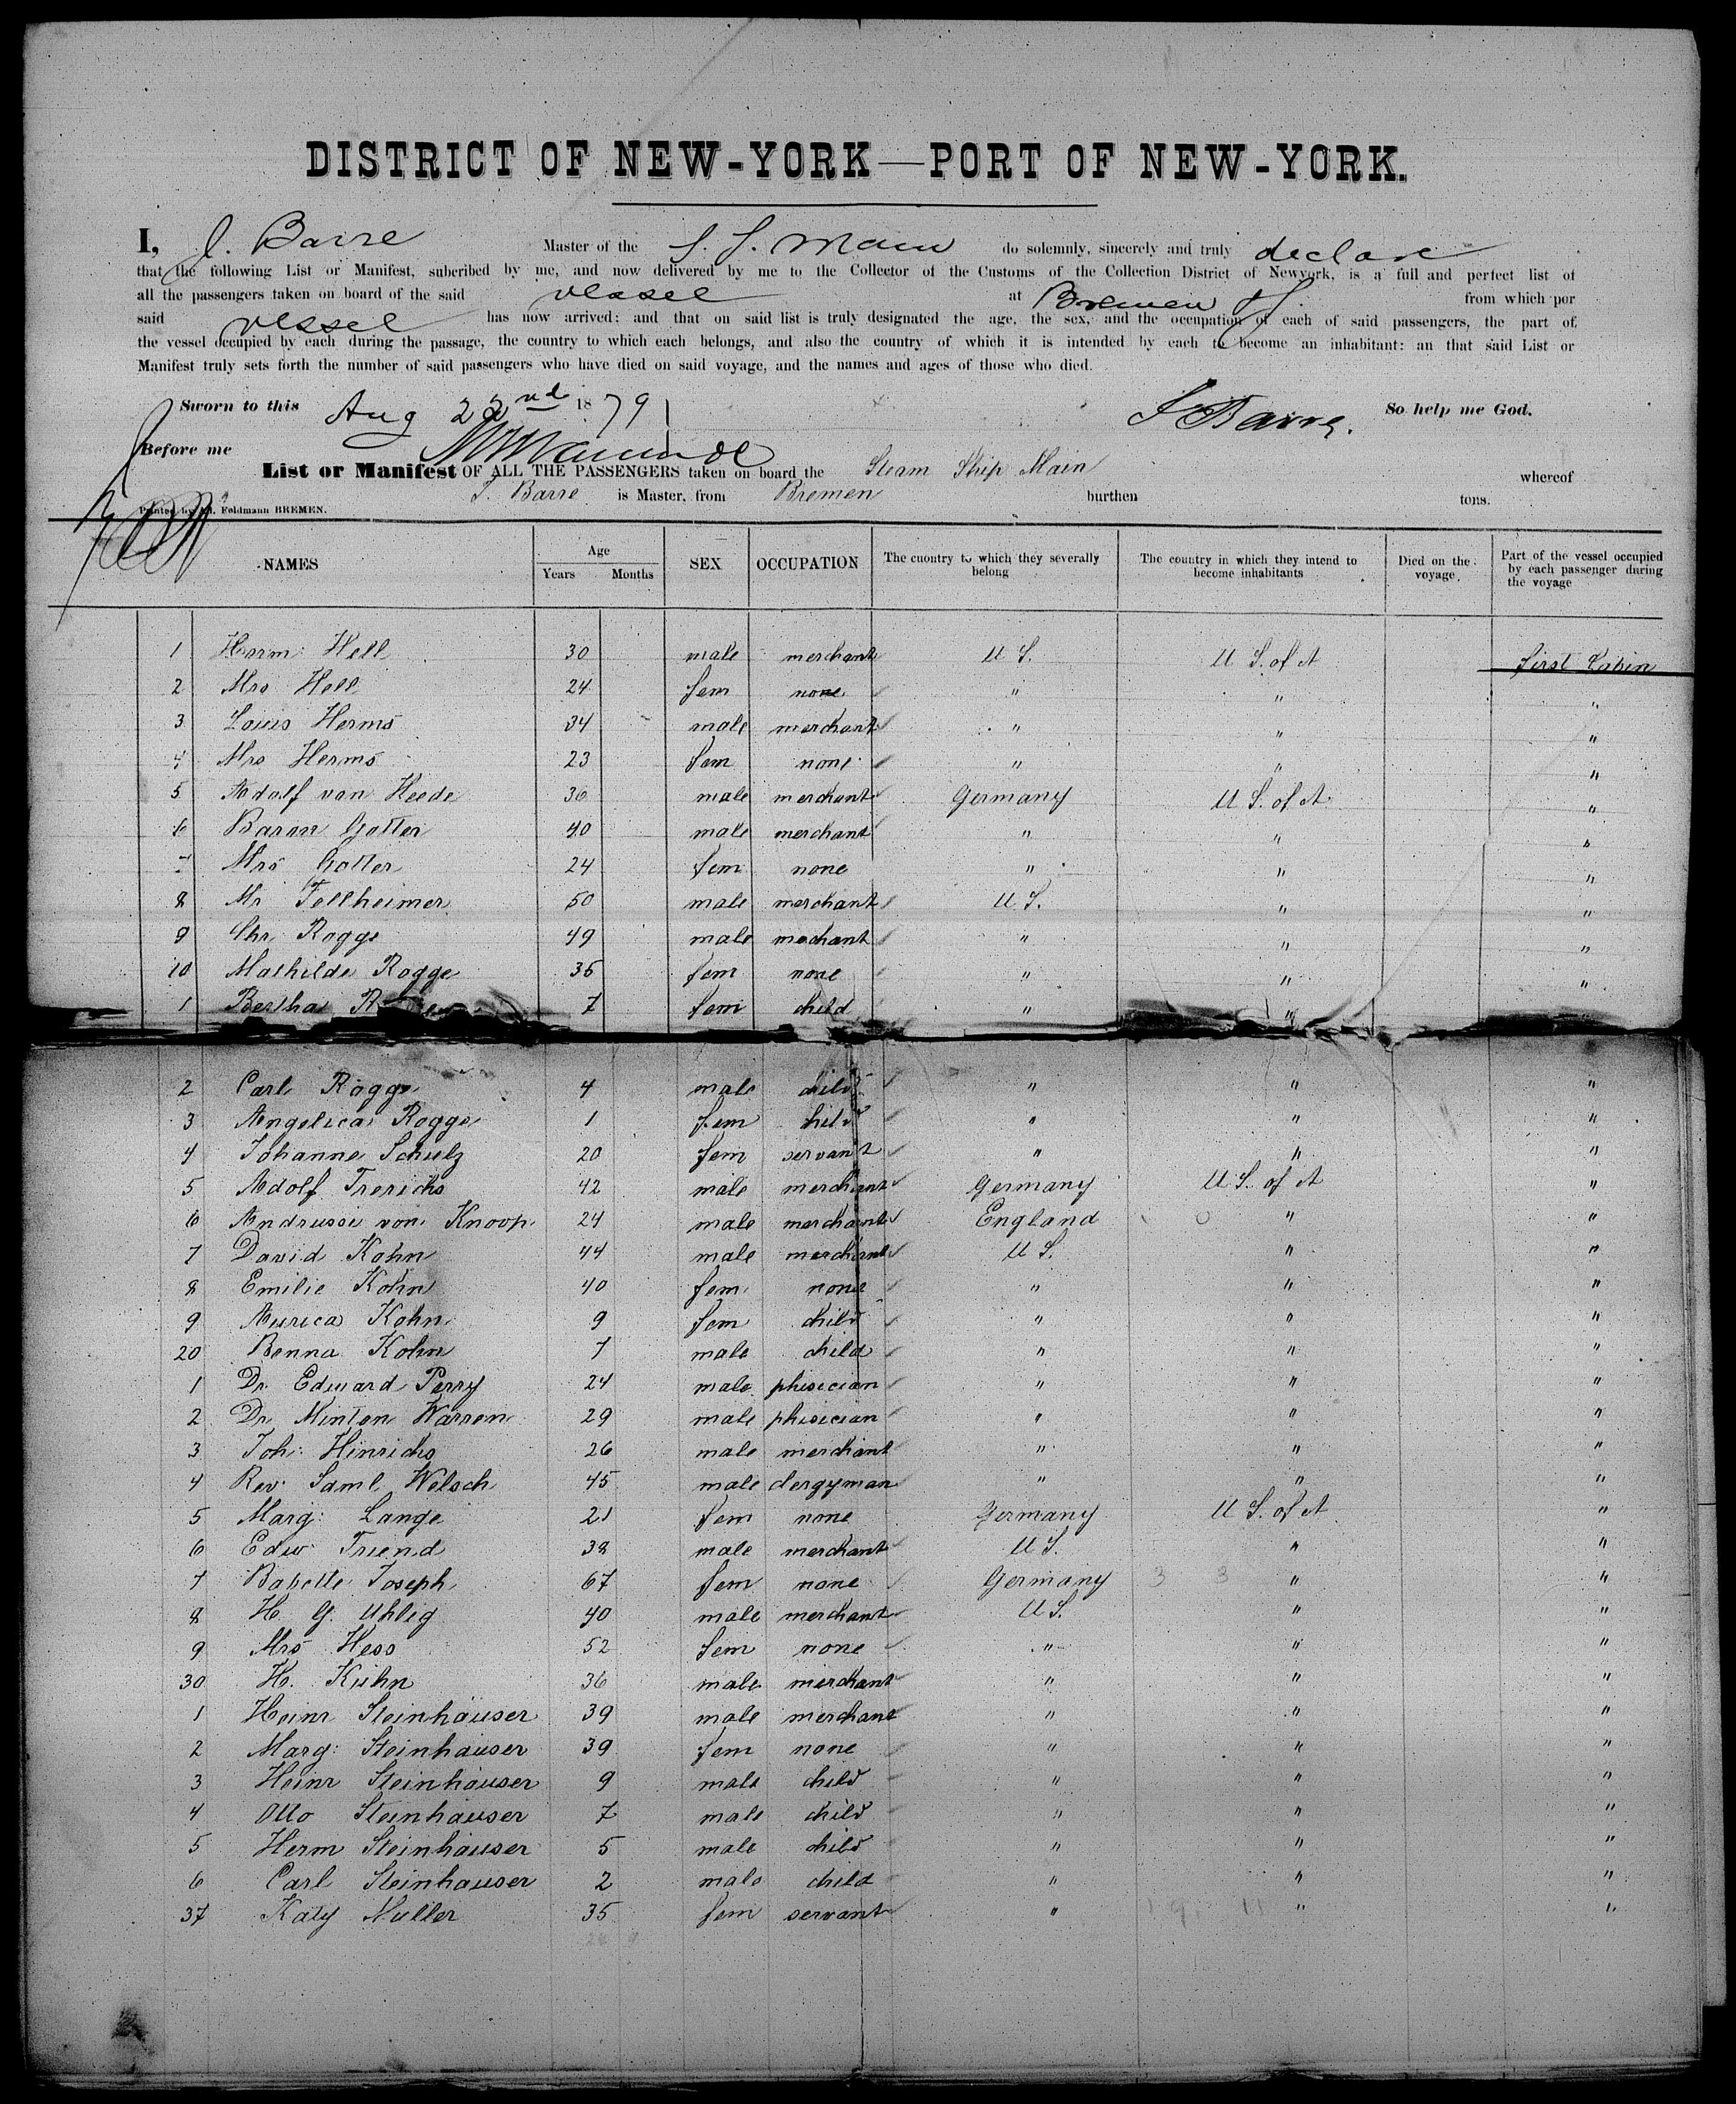 DISTRICT OF NEW-YORK—PORT OF NEW-YORK.
I, J. Barre Master of the S. S. Main do solemnly, sincerely and truly declare
that the following List or Manifest, subcribed by me, and now delivered by me to the Collector of the Customs of the Collection District of Newyork, is a full and perfect list of
all the passengers taken on board of the said vessel at Bremen from which por
said vessel has now arrived: and that on said list is truly designated the age, the sex, and the occupation of each of said passengers, the part of
the vessel occupied by each during the passage, the country to which each belongs, and also the country of which it is intended by each to become an inhabitant: an that said List or
Manifest truly sets forth the number of said passengers who have died on said voyage, and the names and ages of those who died.
Sworn to this Aug 22nd 1879 J Barre. So help me God.
Before me
List or Manifest OF ALL THE PASSENGERS taken on board the Steam Ship Main whereof
J. Barre is Master, from Bremen burthen tons.
Printed by Ad. Feldmann BREMEN.
NAMES Age Years Months SEX OCCUPATION The cuontry to which they severally belong The country in which they intend to become inhabitants Died on the voyage. Part of the vessel occupied by each passenger during the voyage
1 Herm: Hell 30 male merchant U S. U S. of A first Cabin
2 Mrs Hell 24 fem none " " "
3 Louis Herms 34 male merchant " " "
4 Mrs Herms 23 fem none " " "
5 Adolf von Heede 36 male merchant Germany U S. of A "
6 Baron Gotter 40 male merchant " " "
7 Mrs Gotter 24 fem none " " "
8 Mr Fellheimer 50 male merchant U S. " "
9 Chr. Rogge 49 male mechant " " "
10 Mathilde Rogge 35 fem none " " "
1 Bertha 7 fem child " "
2 Carl Rogge 4 male child " " "
3 Angelica Rogge 1 fem child " " "
4 Johanne Schulz 20 fem servant " " "
5 Adolf Frerichs 42 male merchant Germany U S. of A "
6 von Knoop 24 male merchant England " "
7 David Kohn 44 male merchant U S. " "
8 Emilie Kohn 40 fem none " " "
9 Aurica Kohn 9 fem child " " "
20 Benna Kohn 7 male child " " "
1 Dr. Edward Perry 24 male phisician " " "
2 Dr. Minton Warren 29 male phisician " " "
3 Joh: Hinrichs 26 male merchant " " "
4 Rev. Saml. Welsch 45 male clergyman " " "
5 Marg: Lange 21 fem none Germany U S. of A "
6 Edw. Friend 38 male merchant U S. " "
7 Babette Joseph 67 fem none Germany " "
8 H. G. Uhlig 40 male merchant U S. " "
9 Mrs Hess 52 fem none " " "
30 H. Kuhn 36 male merchant " " "
1 Heinr Steinhäuser 39 male merchant " " "
2 Marg: Steinhäuser 39 fem none " " "
3 Heinr Steinhäuser 9 male child " " "
4 Otto Steinhäuser 7 male child " " "
5 Herm Steinhäuser 5 male child " " "
6 Carl Steinhäuser 2 male child " " "
37 Katy Müller 35 fem servant " " "